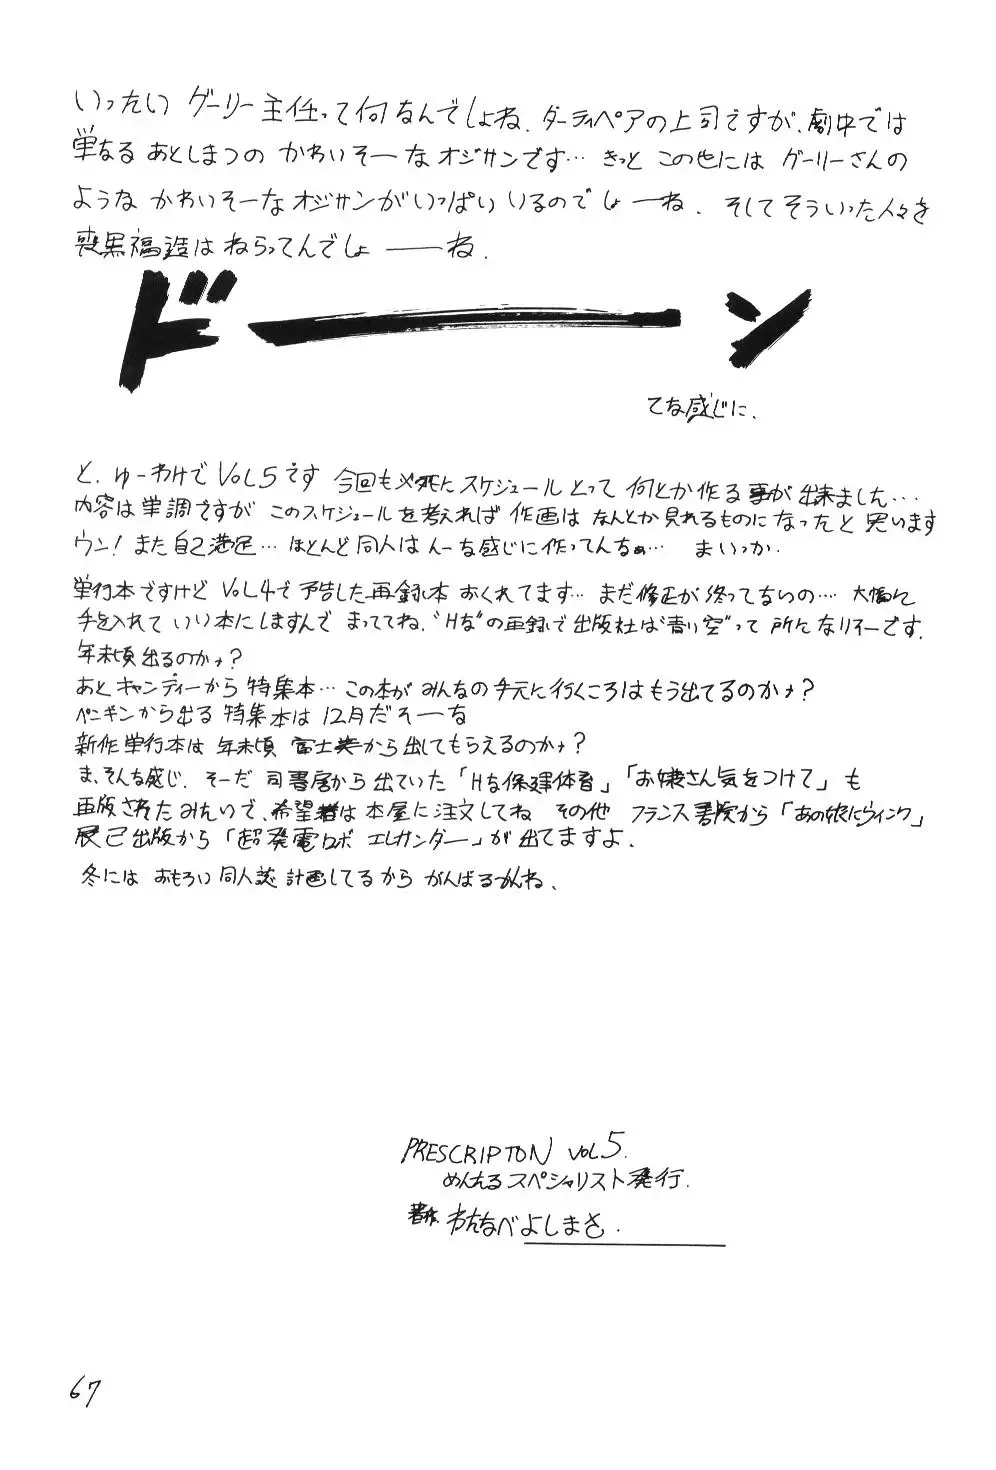 いったい グーリー主任って何なんでしょね、ダーティペアの上司ですが、劇中では
単なる あとしまつの かわいそーなオジサンです… きっと この他には グーリーさんの
ような かわいそーなオジサンがいっぱい いるのでしょーね. そしてそういった人々を
喪黒福造は ねらってんでしょ――ね.
ドーン
てな感じに.
と、ゆーわけで VOL5です 今回も必死にスケジュールとって 何とか作る事が出来ました…
内容は単調ですが このスケジュールを考えれば 作画は なんとか見れるものになったと思います
ウン! また自己満足… ほとんど同人は んーな感じに作ってんなぁ… まいっか.
単行本ですけど VOL4で予告した再録本 おくれてます… まだ修正が終ってないの… 大幅に
手を入れて いい本にしますんで まっててね. "Hな"の再録で出版社は"青い空"って 所になりそーです.
年末頃出るのかナ?
あと キャンディーから 特集本… この本が みんなの手元に行くころは もう出てるのかナ?
ペンギンから出る 特集本は 12月だそーな
新作単行本は 年末頃 富士美から出してもらえるのかナ?
ま、そんな感じ. そーだ 司書房から出ていた「Hな保健体育」「お嬢さん気をつけて」も
再版されたみたいで、希望者は本屋に注文してね その他 フランス書院から「あの娘にウィンク」
辰巳出版から「超発電ロボ エレガンダー」が出てますよ.
冬には おもろい同人誌 計画してるから がんばるかんね.
PRESCRIPTON VOL5.
めんたるスペシャリスト発行.
著作. わたなべよしまさ.
67